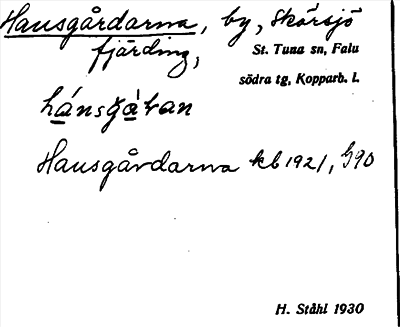 Hansgårdarna, by, Skörsjö
fjärding,
St. Tuna sn, Falu
södra tg, Kopparb. l.
hánsgàran
Hansgårdarna kb 1921, 590
H. Ståhl 1930